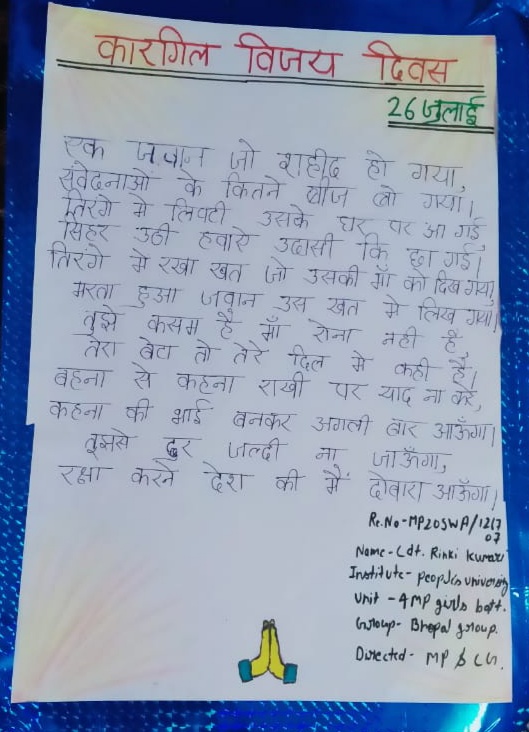 कारगिल विजय दिवस
26 जुलाई
एक जवान जो शहीद हो गया,
संवेदनाओं के कितने बीज बो गया।
तिरंगे मे लिपटी उसके घर पर आ गई
सिहर उठी हवाये उदासी कि छा गई।
तिरंगे मे रखा खत जो उसकी माँ को दिख गया,
मरता हुआ जवान उस खत मे लिख गया।
तुझे कसम है माँ रोना नही है,
तेरा बेटा तो तेरे दिल मे कही है।
बहना से कहना राखी पर याद ना करे,
कहना की भाई बनकर अगली बार आऊँगा।
तुझसे दूर जल्दी ना जाऊँगा,
रक्षा करने देश की मैं दोबारा आऊँगा।
Re.No-MP20SWA/1217
07
Name-Cdt. Rinki Kumari
Institute- people's university
Unit - 4MP girls batt.
Group- Bhopal group.
Directed - MP & CG.